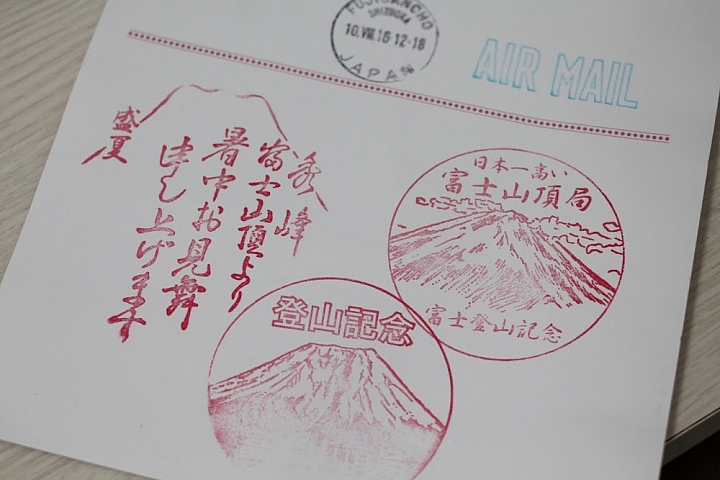 FUJISANCHO
SHIZUOKA
10.VIII.16-12-18
JAPAN
AIR MAIL
秀峰
富士山頂より
暑中お見舞
申し上げます
盛夏
日本一高い
富士山頂局
富士登山記念
登山記念